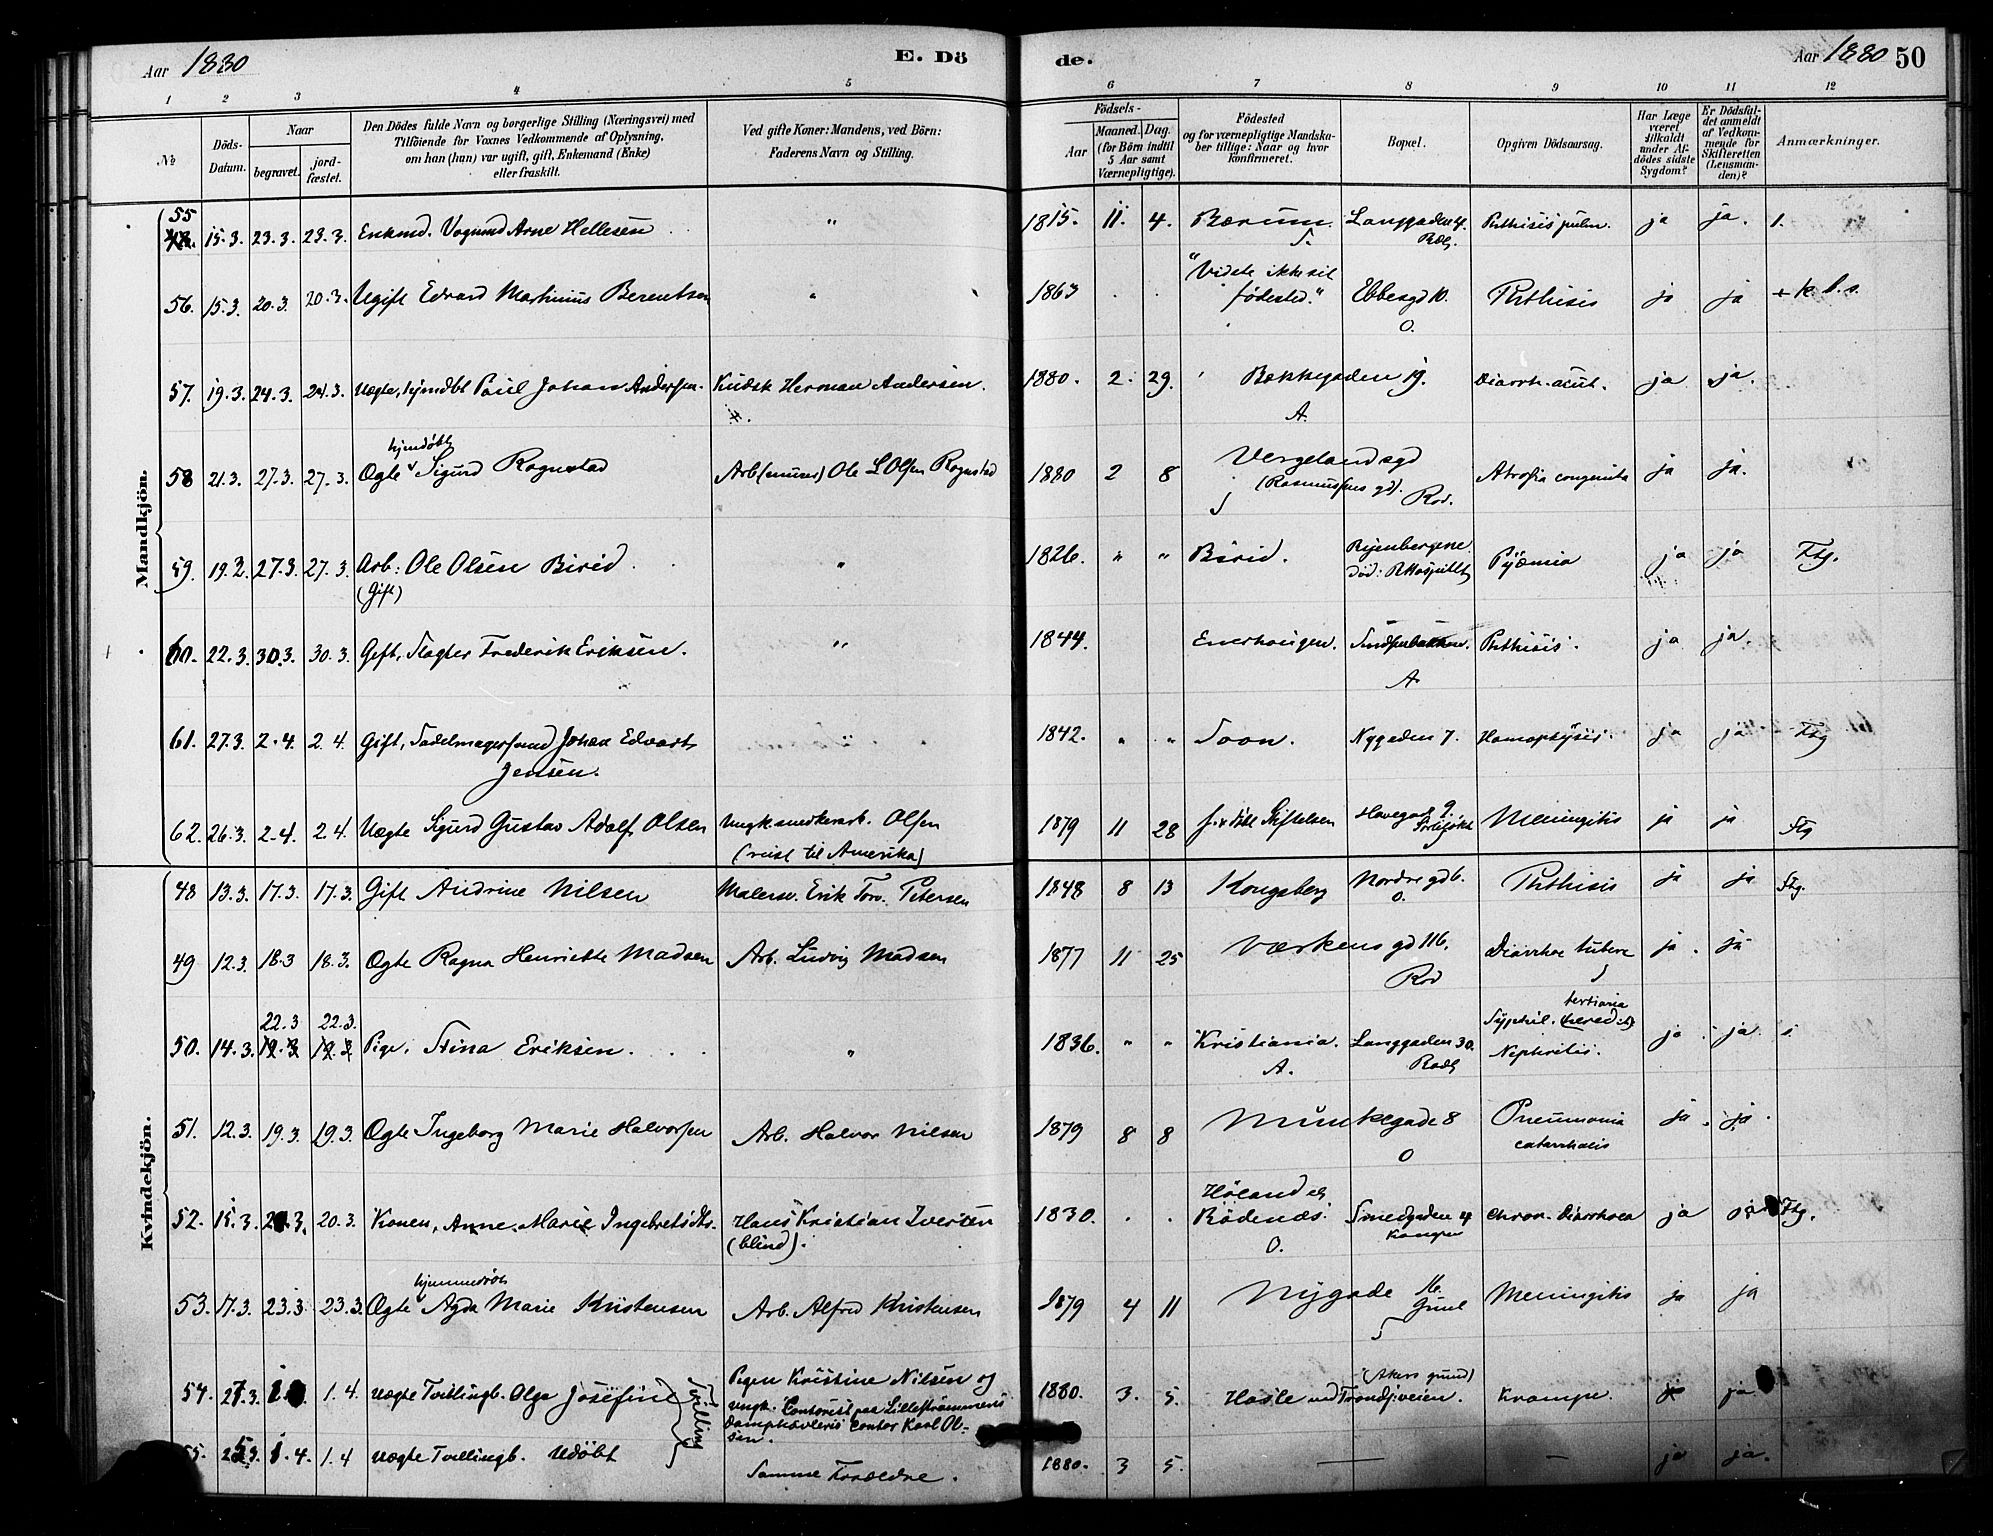 Aar 1880 E. Dö de. Aar 1880 50
1 2 3 4 5 6 7 8 9 10 11 12
№ Döds-Datum. Naar begravet. jord-fæstet. Den Dödes fulde Navn og borgerlige Stilling (Næringsvei) med Tilföiende for Voxnes Vedkommende af Oplysning, om han (hun) var ugift, gift, Enkemand (Enke) eller fraskilt. Ved gifte Koner: Mandens, ved Börn: Faderens Navn og Stilling. Födsels- Aar Maaned. Dag. (for Börn indtil 5 Aar samt Værnepligtige). Födested og for værnepligtige Mandskaber tillige: Naar og hvor konfirmeret. Bopæl. Opgiven Dödsaarsag. Har Læge været tilkaldt under Afdödes sidste Sygdom? Er Dödsfaldet anmeldt af Vedkommende for Skifteretten (Lensmanden)? Anmærkninger.
Mandkjön.
55 15.3. 23.3. 23.3. Enkmd. Vognmd Arne Hellesen " 1815. 11. 4. Bærum. Langgaden 4. Phthisis pulm. ja ja. 1.
56. 15.3. 20.3. 20.3. Ugift Edvard Martinius Berentsen " 1863 . . "Vidste ikke sit
fødested." Ebbesgd 10. Phthisis ja ja
O.
57. 19.3. 24.3. 24.3. Uægte, hjmdbt Paul Johan Andersen. Kudsk Herman Andersen. 1880. 2. 29. Bekkegaden 19. Diarrh. acut. ja ja.
A.
hjmdøbt
58 21.3. 27.3. 27.3. Ægte Sigurd Rognstad Arb (murer) Ole L Olsen Rognstad 1880 2 8 Vergelandsgd Atrofia congenita ja ja.
(Rasmussens gd). Rod.
59. 19.3. 27.3. 27.3. Arb: Ole Olsen Birid. " 1826. " " Birid. Ryenbergene. Pyæmia ja ja Ftg.
(Gift) Död: R.Hospitalet
60. 22.3. 30.3. 30.3. Gift, Slagter Frederik Eriksen. " 1844. Enerhougen. Phthisis. ja ja.
A
61. 27.3. 2.4. 2.4. Gift, Sadelmagersvend Johan Edvart " 1842. " " Soon. Nygaden 7. Hæmoptysis. ja ja Ftg
Jensen.
62. 26.3. 2.4. 2.4. Uægte Sigurd Gustav Adolf Olsen Ungk snedkerarb. Olsen 1879 11 28 Stiftelsen Havegad 9. Meningitis ja ja Ftg
(reist til Amerika)
Kvindekjön.
48 13.3. 17.3. 17.3. Gift Andrine Nilsen Malersv. Erik Torv. Petersen 1848 8 13 Kongsberg Nordregd 6. Phthisis ja ja Ftg.
O.
49 12.3. 18.3 18.3. Ægte Ragna Henriette Madsen Arb. Ludvig Madsen 1877 11 25 Værkensgd 116. Diarrhoe tuberc ja. ja
Rod
22.3 22.3. tertiaria
50. 14.3. 19.3 19.3 Pige, Stina Eriksen. " 1836. " " Kristiania. Langgaden 30. Syphil. (hered.) ja ja
A. Rodl Nephritis.
51. 12.3. 19.3. 19.3. Ægte Ingeborg Marie Halvorsen Arb. Halvor Nilsen 1879 8 8 Munkegade 8 Pneumonia ja ja.
O catarrhalis
Höland el.
52. 15.3. 20.3. 20.3. Konen, Anne Marie Ingebretsdtr. Hans Kristian Iversen 1830. . . Rödenæs. Smedgaden 4 chron. diarrhoea ja Ftg.
(blind). O. Kampen
hjemmedøbt
53. 17.3. 23.3. 23.3. Ægte Agda Marie Kristensen Arb. Alfred Kristensen 1879 4 11 Nygade 16. Meningitis ja ja
54. 27.3. 1.4. Uægte Tvillingb. Olga Josefine Tvilling Pigen Kristine Nilsen og 1880. 3. 5. Hasle ved Trondhj.veien. (Akers grund) Krampe. ja ja
ungk. Contorist paa Lillestrømmens
Damphøvleris Contor Karl Ol-
sen.
55. 25.3. 1.4. 1.4 Uægte Tvillingb. Udøbt Samme Forældre. 1880. 3 5. — — ja ja.